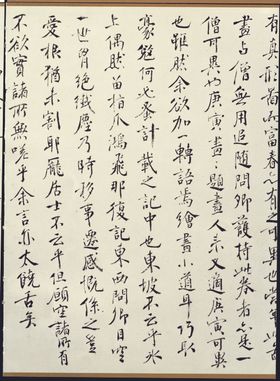 盡占僧無用追隨問卿護持此卷者亦是一
僧可異也庚寅畫題畫人亦又適庚寅可異
也雖然余欲加一轉語焉繪畫小道耳巧取
豪何必蚤計載之記中也東坡不云乎
上偶然留指爪鴻飛那復記東西問卿目空
一世胷絕纖塵乃時移事遷感慨係之豈
愛根猶未割耶龐居士不云乎但願空諸所有
不欲實諸所無嗟乎余言亦太饒舌矣